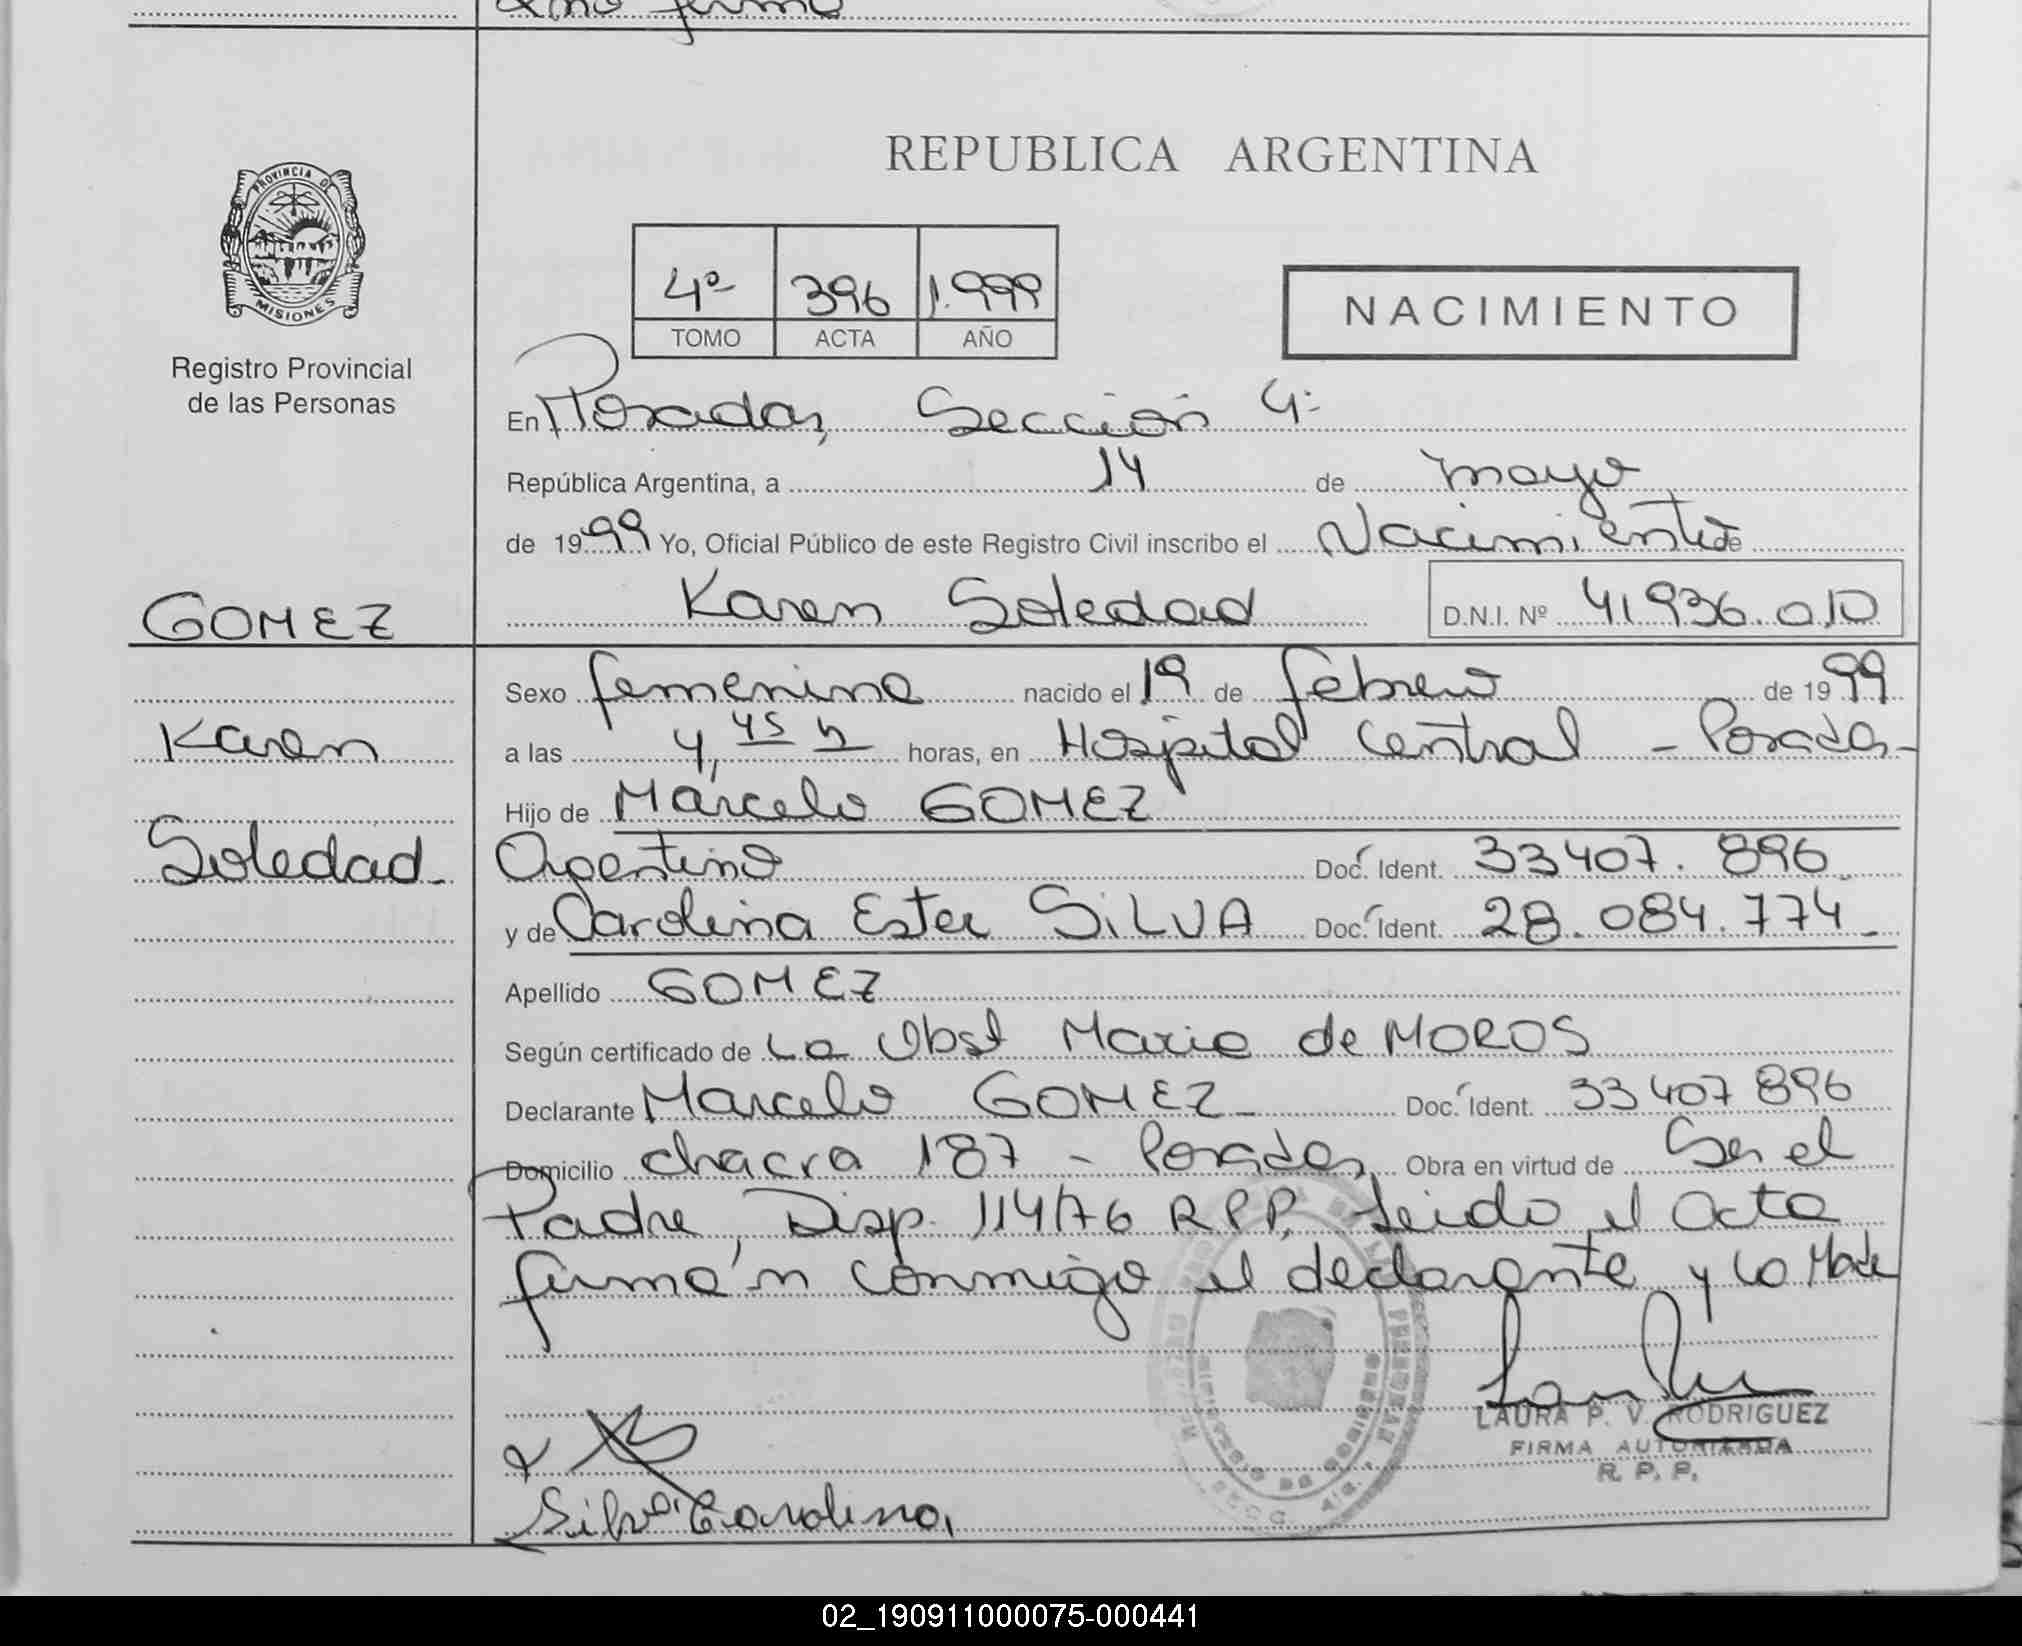 firma
REPUBLICA ARGENTINA
PROVINCIA DE
MISIONES
Registro Provincial
de las Personas
4º 396 1.999
TOMO ACTA AÑO
NACIMIENTO
En Posadas, Sección 4ª
República Argentina, a 14 de mayo
de 1999 Yo, Oficial Público de este Registro Civil inscribo el Nacimiento de
Karen Soledad D.N.I. Nº 41936.010
GOMEZ
Karen
Soledad
Sexo femenino nacido el 19 de febrero de 1999
a las 4,45 h horas, en Hospital Central - Posadas-
Hijo de Marcelo GOMEZ
Argentino Doc. Ident. 33407.896
y de Carolina Ester SILVA Doc. Ident. 28.084.774
Apellido GOMEZ
Según certificado de La Obst Maria de MOROS
Declarante Marcelo GOMEZ Doc. Ident. 33407896
Domicilio chacra 187 - Posadas, Obra en virtud de Ser el
Padre, Disp. 114/76 RPP, Leido el acta
firma'n conmigo el declarante y la Madre
LAURA P. V. RODRIGUEZ
FIRMA AUTORIZADA
R. P. P.
Silva Carolina
02_190911000075-000441